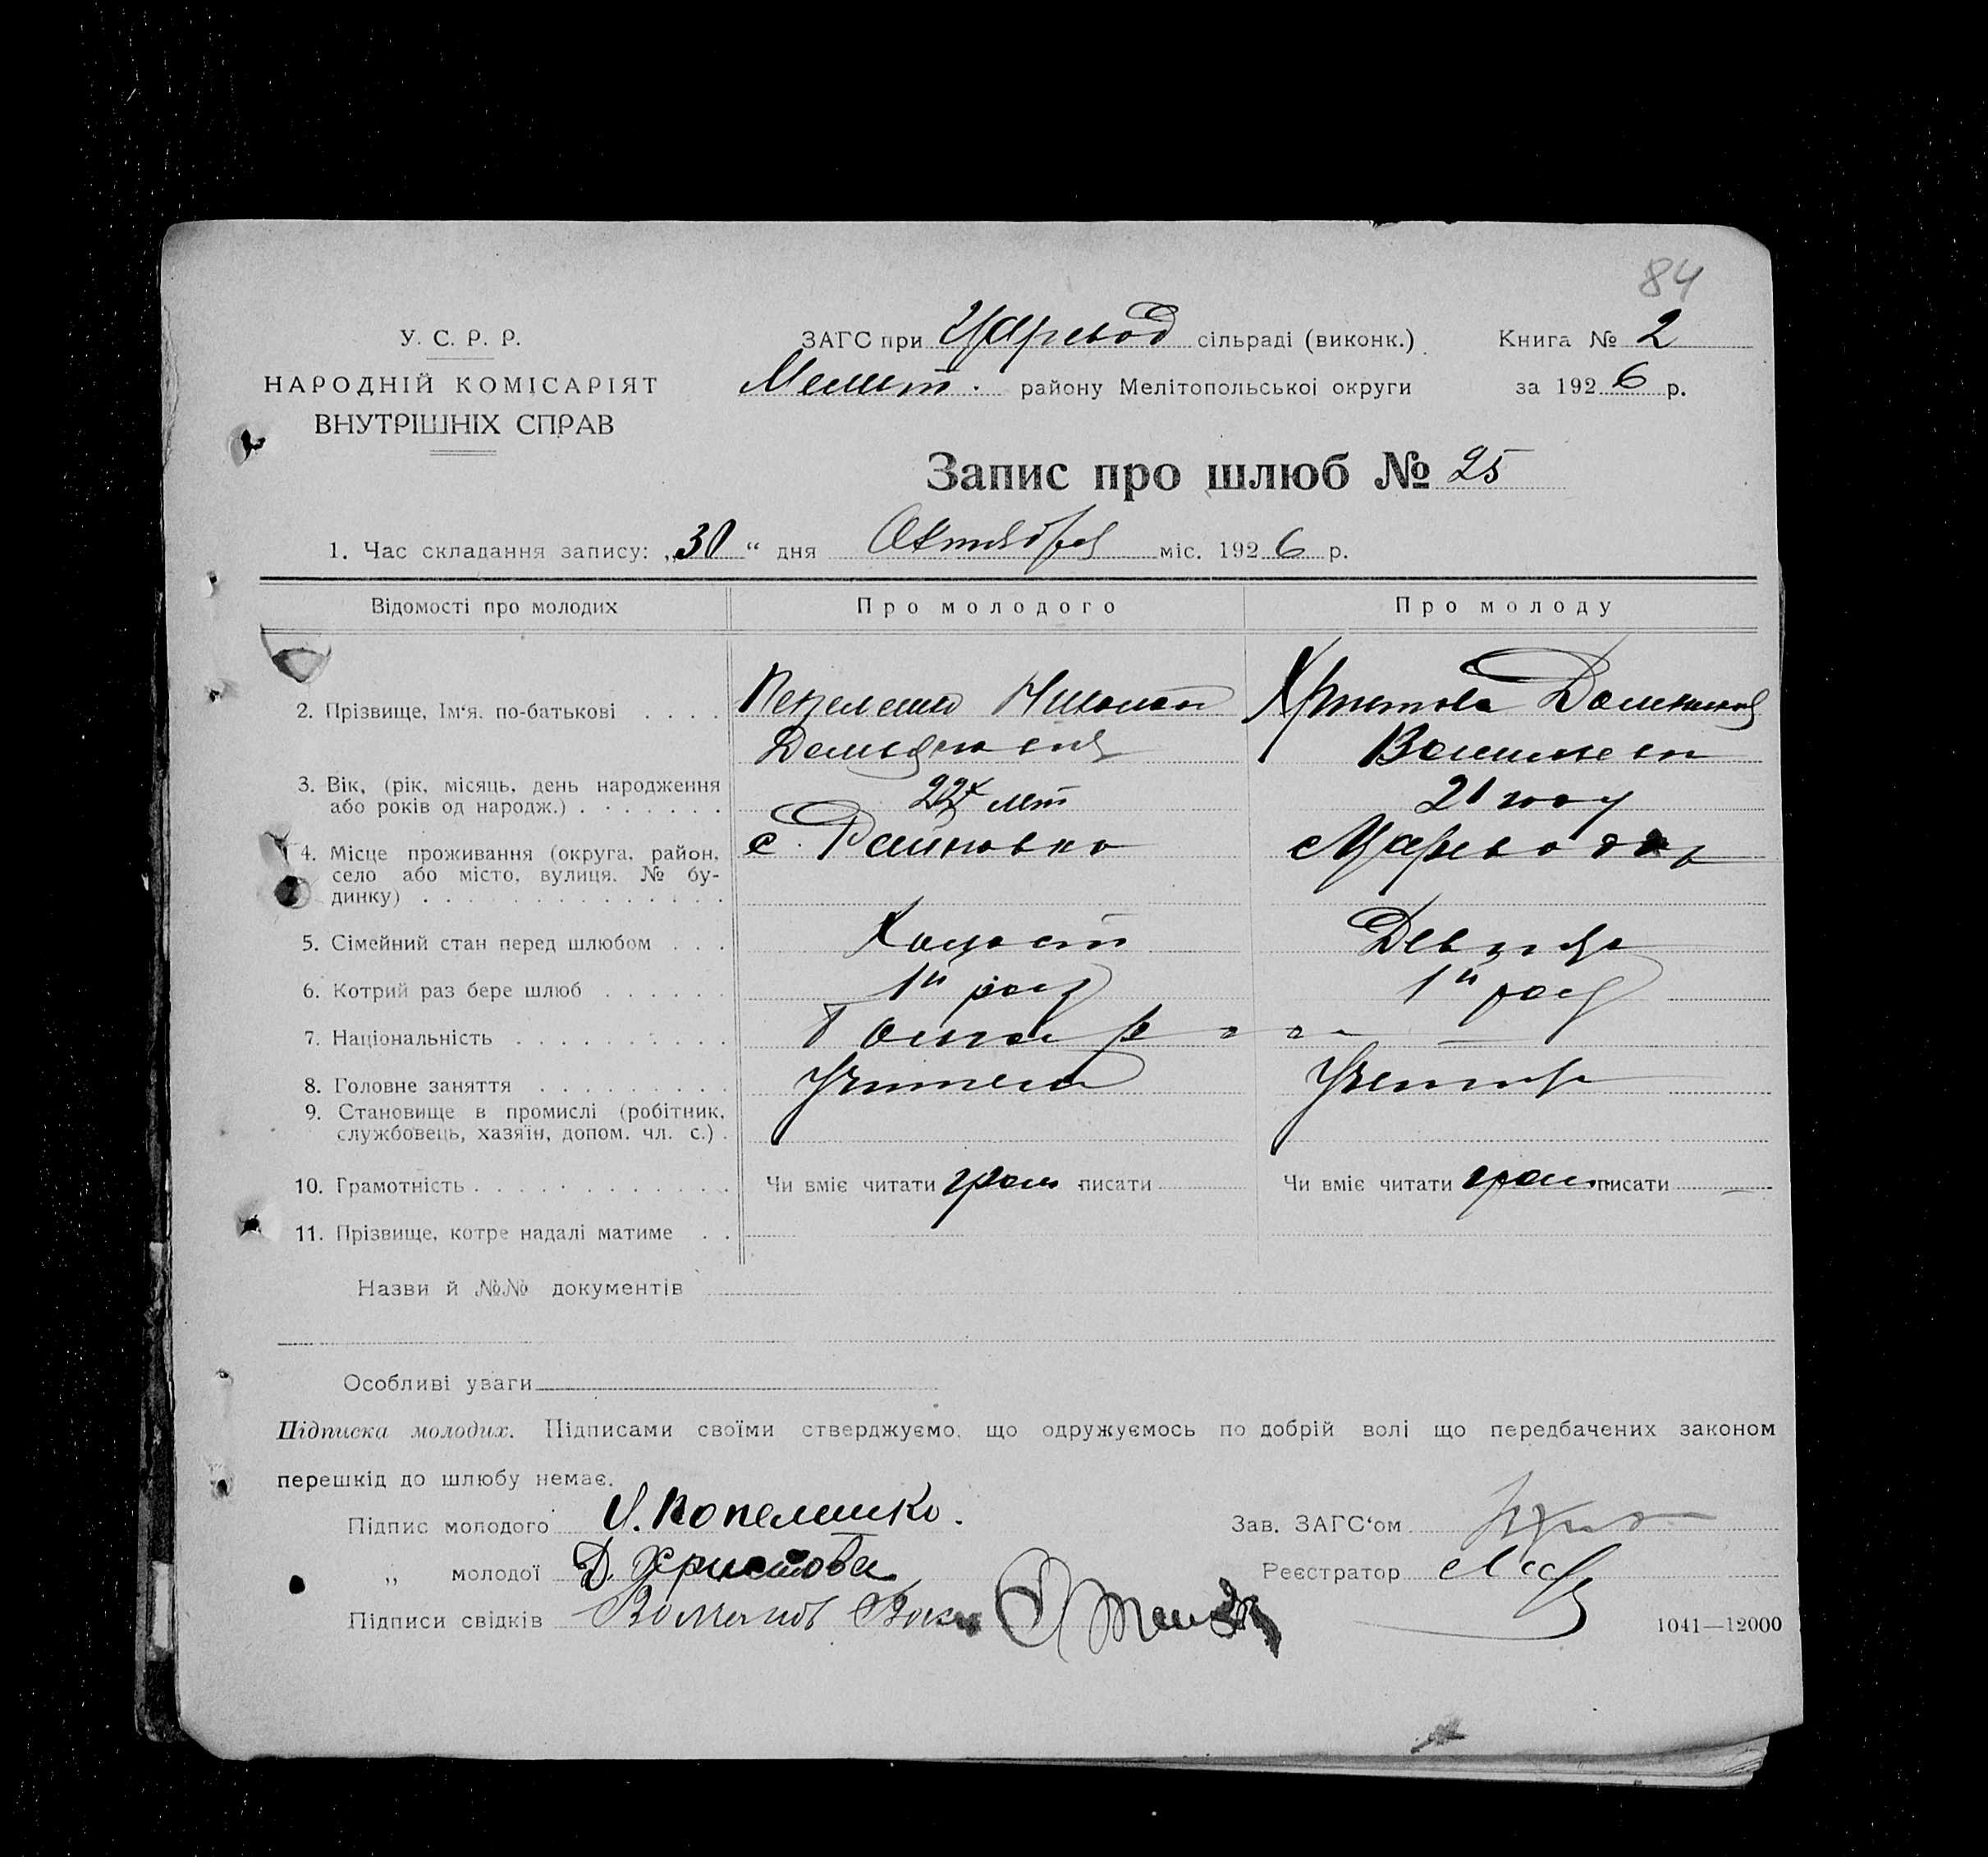 84
У. С. Р. Р.
НАРОДНІЙ КОМІСАРІЯТ
ВНУТРІШНІХ СПРАВ
ЗАГС при Царевод сільраді (виконк.)
Мелит. району Мелітопольської округи
Книга № 2
за 1926 р.
Запис про шлюб № 25
1. Час складання запису: „30“ дня Октября міс. 1926 р.
Відомості про молодих Про молодого Про молоду
2. Прізвище, Ім'я, по-батькові Николай Христова
3. Вік, (рік, місяць, день народження
або років од народж.) лет 21 году
4. Місце проживання (округа, район,
село або місто, вулиця, № бу-
динку) с. Райновка с Царевода
5. Сімейний стан перед шлюбом Холост Девица
6. Котрий раз бере шлюб 1й раз 1й раз
7. Національність Болгаре
8. Головне заняття Учитель
9. Становище в промислі (робітник,
службовець, хазяїн, допом. чл. с.)
10. Грамотність Чи вміє читати грам писати Чи вміє читати грам писати
11. Прізвище, котре надалі матиме
Назви й №№ документів
Особливі уваги
Підписка молодих. Підписами своїми стверджуємо, що одружуємось по добрій волі що передбачених законом
перешкід до шлюбу немає.
Підпис молодого Зав. ЗАГС'ом
„ молодої Д. Христова Реєстратор
Підписи свідків
1041—12000